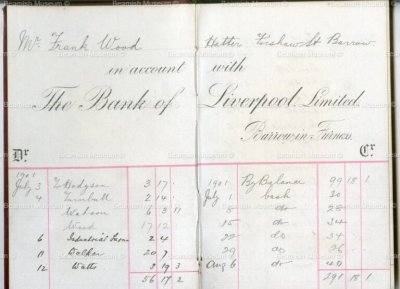 Mr. Frank Wood Hatter Forshaw St Barrow
in account with
The Bank of Liverpool Limited.
Barrow-in-Furness.
Dr Cr
1901
July 3 To Hodgson 3 17 .
4 Turnbull 2 14 .
Watson 6 3 11
Wood 17 12
6 2 4
11 Walker 20 7
12 Watts 2 19 3
56 17 2
1901 By Balance 99 18 1
July 1 cash 30
8 do 28
15 do 34
22 do 34
29 do 26
Aug 6 do 40
291 18 1
Beamish Museum ©